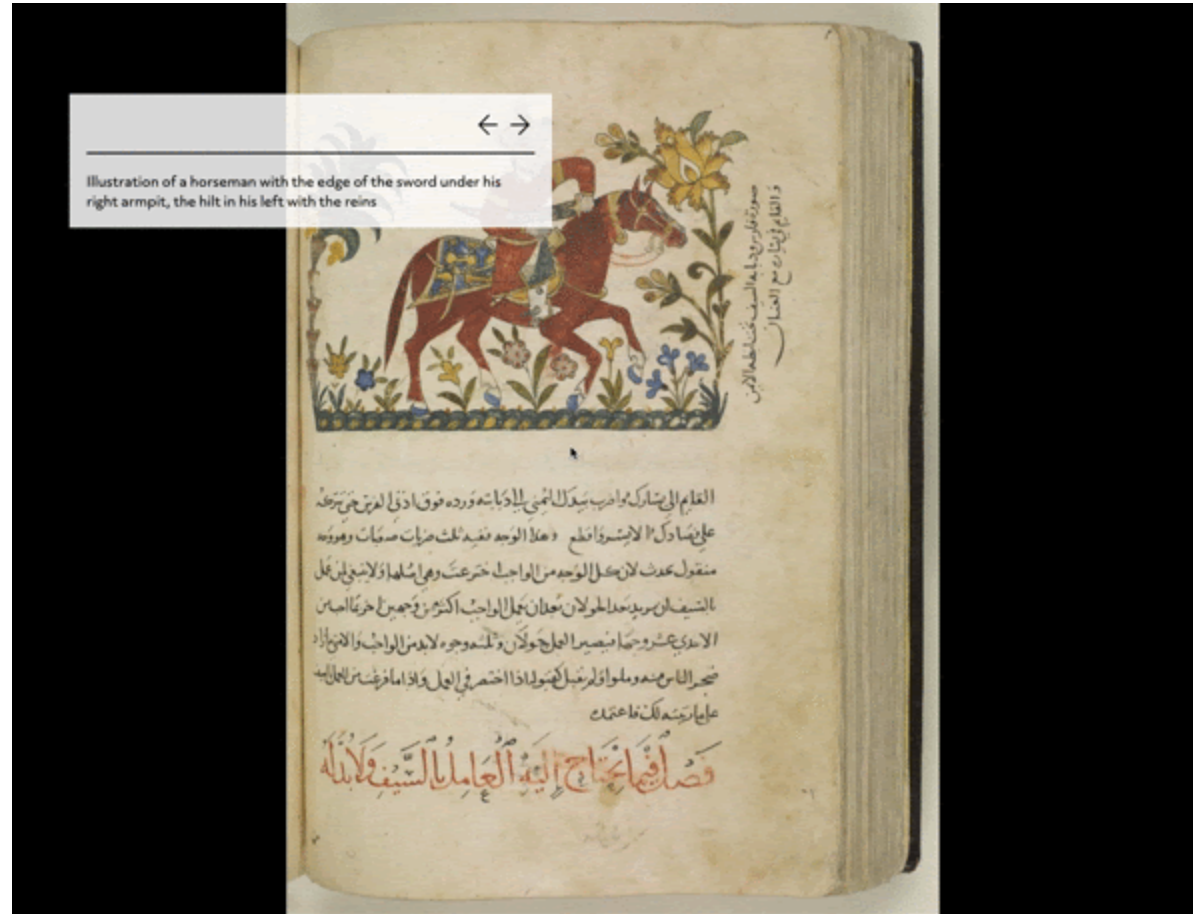 Illustration of a horseman with the edge of the sword under his
right armpit, the hilt in his left with the reins
صورة فارس وذبابة السيف تحت ابطه الايمن
والقايم في يساره مع العنان
القايم الى يسارك واضرب بيدك اليمنى الى ذبابته ورده فوق اذني الفرس حتى
على وهذا الوجه ففيه ثلث ضربات صعبات وهو وجه
منقول محدث لان كل الوجه من الواجب وهي ولا ينبغي لمن عمل
بالسيف ان يريد بعد الجولان بعد ان يعمل الواجب اكثر من وجهين
الاحدى عشر وجها فيصير العمل جولان وثلثه وجوه لابد من الواجب والا متى زاد
ضجر الناس منه وملوا ولم يقبل كقبوله اذا اختصر في العمل واذا ما فرغت من العمل
على ما رتبته لك فاعتمد
فَصل فيما يحتاج إليه العامل بالسَّيف ولا بد له